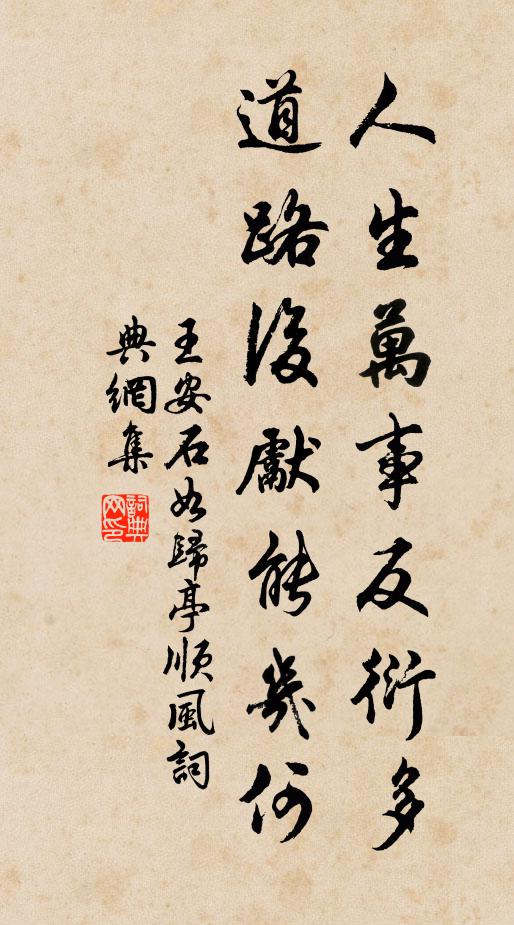 人生萬事反衍多
道路後獻能幾何
王安石如歸亭順風詞
典網集
詞典网印